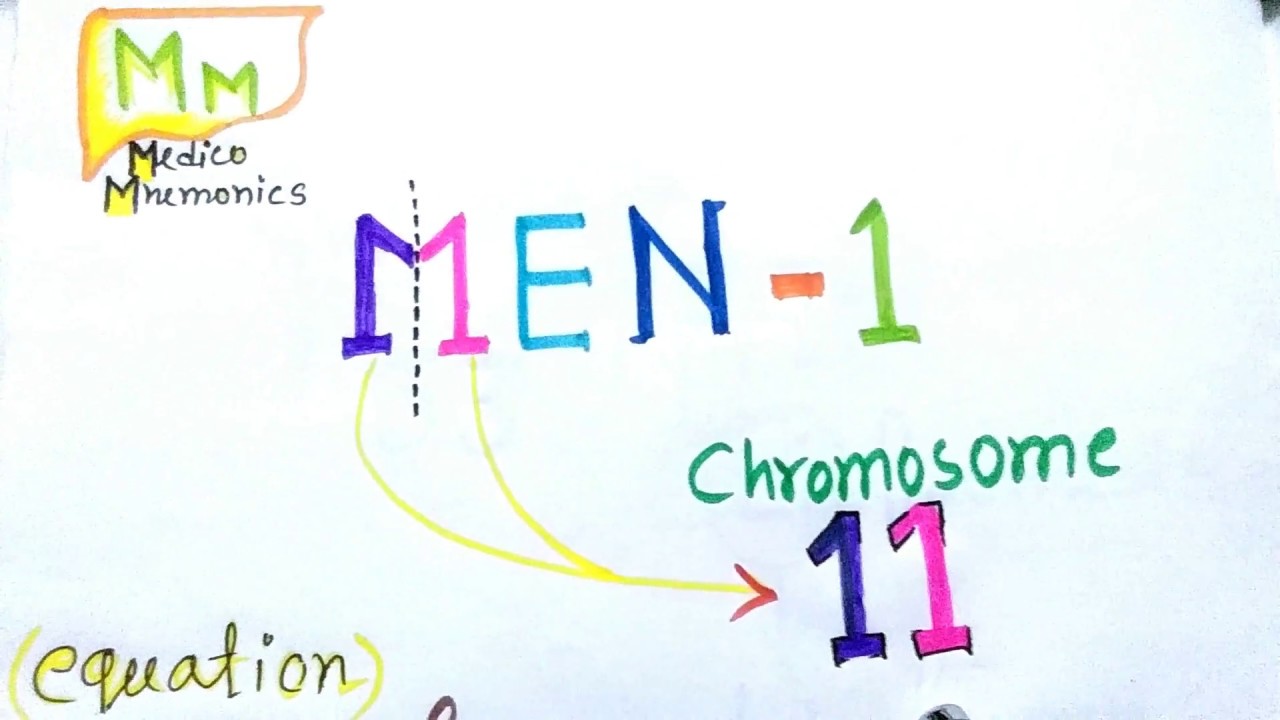 Mm
Medico
Mnemonics
MEN-1
Chromosome
11
(equation)